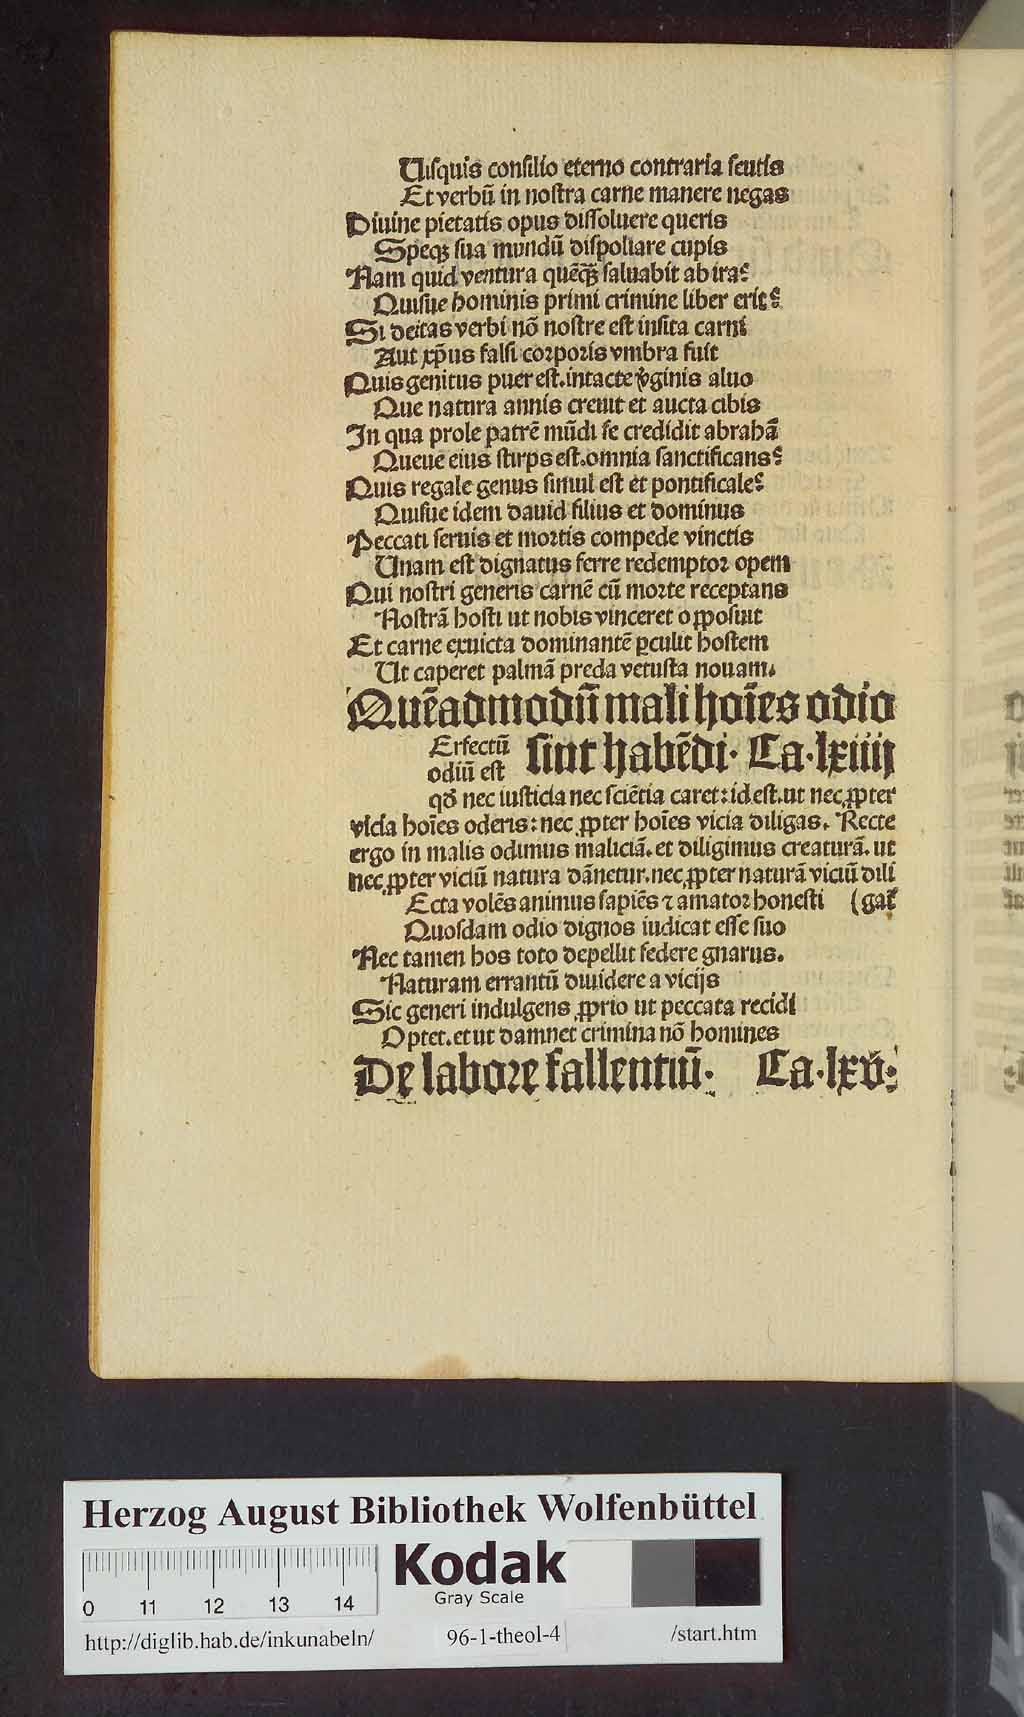 Uisquis consilio eterno contraria sentis
Et verbū in nostra carne manere negas
Diuine pietatis opus dissoluere queris
Speqꝫ sua mundū dispoliare cupis
Nam quid ventura quēqꝫ saluabit ab ira?
Quisue hominis primi crimine liber erit?
Si deitas verbi nō nostre est insita carni
Aut xp̄us falsi corporis vmbra fuit
Quis genitus puer est. intacte v̓ginis aluo
Que natura annis creuit et aucta cibis
In qua prole patrē mūdi se credidit abrahā
Queue eius stirps est. omnia sanctificans?
Quis regale genus simul est et pontificale?
Quisue idem dauid filius et dominus
Peccati seruis et mortis compede vinctis
Unam est dignatus ferre redemptor opem
Qui nostri generis carnē cū morte receptans
Nostrā hosti ut nobis vinceret oꝓposuit
Et carne exuicta dominantē ꝑculit hostem
Ut caperet palmā preda vetusta nouam.
Quēadmodū mali hoīes odio
sint habēdi. Ca. lxiiij
Erfectū
odiū est
qđ nec iusticia nec sciētia caret: id est. ut nec ꝓpter
vicia hoīes oderis: nec ꝓpter hoīes vicia diligas. Recte
ergo in malis odimus maliciā. et diligimus creaturā. ut
nec ꝓpter viciū natura dānetur. nec ꝓpter naturā viciū dili
Ecta volēs animus sapiēs ⁊ amator honesti (gat̄
Quosdam odio dignos iudicat esse suo
Nec tamen hos toto depellit federe gnarus.
Naturam errantū diuidere a vicijs
Sic generi indulgens ꝓprio ut peccata recidi
Optet. et ut damnet crimina nō homines
De labore fallentiū. Ca. lxv.
Herzog August Bibliothek Wolfenbüttel
Kodak
Gray Scale
0 11 12 13 14
http://diglib.hab.de/inkunabeln/ 96-1-theol-4 /start.htm